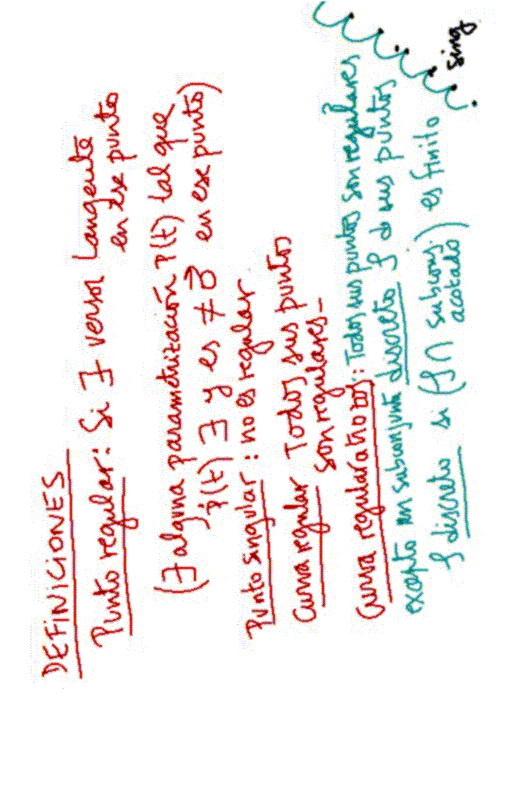 DEFINICIONES
Punto regular: Si ∃ versor tangente
en ese punto
(∃ alguna parametrización P(t) tal que
Ṗ(t) ∃ y es ≠ 0⃗ en ese punto)
Punto singular: no es regular
Curva regular Todos sus puntos
son regulares-
Curva regular a trozos: Todos sus puntos son regulares
excepto un subconjunto discreto S d sus puntos
S discreto si (S ∩ subconj. acotado) es finito
sing